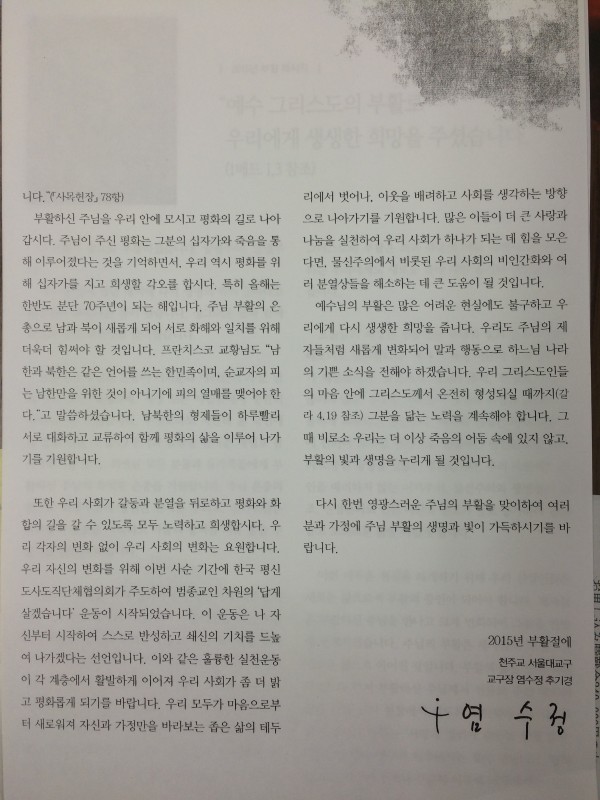 니다."(「사목헌장」 78항)
부활하신 주님을 우리 안에 모시고 평화의 길로 나아
갑시다. 주님이 주신 평화는 그분의 십자가와 죽음을 통
해 이루어졌다는 것을 기억하면서, 우리 역시 평화를 위
해 십자가를 지고 희생할 각오를 합시다. 특히 올해는
한반도 분단 70주년이 되는 해입니다. 주님 부활의 은
총으로 남과 북이 새롭게 되어 서로 화해와 일치를 위해
더욱더 힘써야 할 것입니다. 프란치스코 교황님도 "남
한과 북한은 같은 언어를 쓰는 한민족이며, 순교자의 피
는 남한만을 위한 것이 아니기에 피의 열매를 맺어야 한
다."고 말씀하셨습니다. 남북한의 형제들이 하루빨리
서로 대화하고 교류하여 함께 평화의 삶을 이루어 나가
기를 기원합니다.
또한 우리 사회가 갈등과 분열을 뒤로하고 평화와 화
합의 길을 갈 수 있도록 모두 노력하고 희생합시다. 우
리 각자의 변화 없이 우리 사회의 변화는 요원합니다.
우리 자신의 변화를 위해 이번 사순 기간에 한국 평신
도사도직단체협의회가 주도하여 범종교인 차원의 '답게
살겠습니다' 운동이 시작되었습니다. 이 운동은 나 자
신부터 시작하여 스스로 반성하고 쇄신의 기치를 드높
여 나가겠다는 선언입니다. 이와 같은 훌륭한 실천운동
이 각 계층에서 활발하게 이어져 우리 사회가 좀 더 밝
고 평화롭게 되기를 바랍니다. 우리 모두가 마음으로부
터 새로워져 자신과 가정만을 바라보는 좁은 삶의 테두
리에서 벗어나, 이웃을 배려하고 사회를 생각하는 방향
으로 나아가기를 기원합니다. 많은 이들이 더 큰 사랑과
나눔을 실천하여 우리 사회가 하나가 되는 데 힘을 모은
다면, 물신주의에서 비롯된 우리 사회의 비인간화와 여
러 분열상들을 해소하는 데 큰 도움이 될 것입니다.
예수님의 부활은 많은 어려운 현실에도 불구하고 우
리에게 다시 생생한 희망을 줍니다. 우리도 주님의 제
자들처럼 새롭게 변화되어 말과 행동으로 하느님 나라
의 기쁜 소식을 전해야 하겠습니다. 우리 그리스도인들
의 마음 안에 그리스도께서 온전히 형성되실 때까지(갈
라 4,19 참조) 그분을 닮는 노력을 계속해야 합니다. 그
때 비로소 우리는 더 이상 죽음의 어둠 속에 있지 않고,
부활의 빛과 생명을 누리게 될 것입니다.
다시 한번 영광스러운 주님의 부활을 맞이하여 여러
분과 가정에 주님 부활의 생명과 빛이 가득하시기를 바
랍니다.
2015년 부활절에
천주교 서울대교구
교구장 염수정 추기경
염 수정